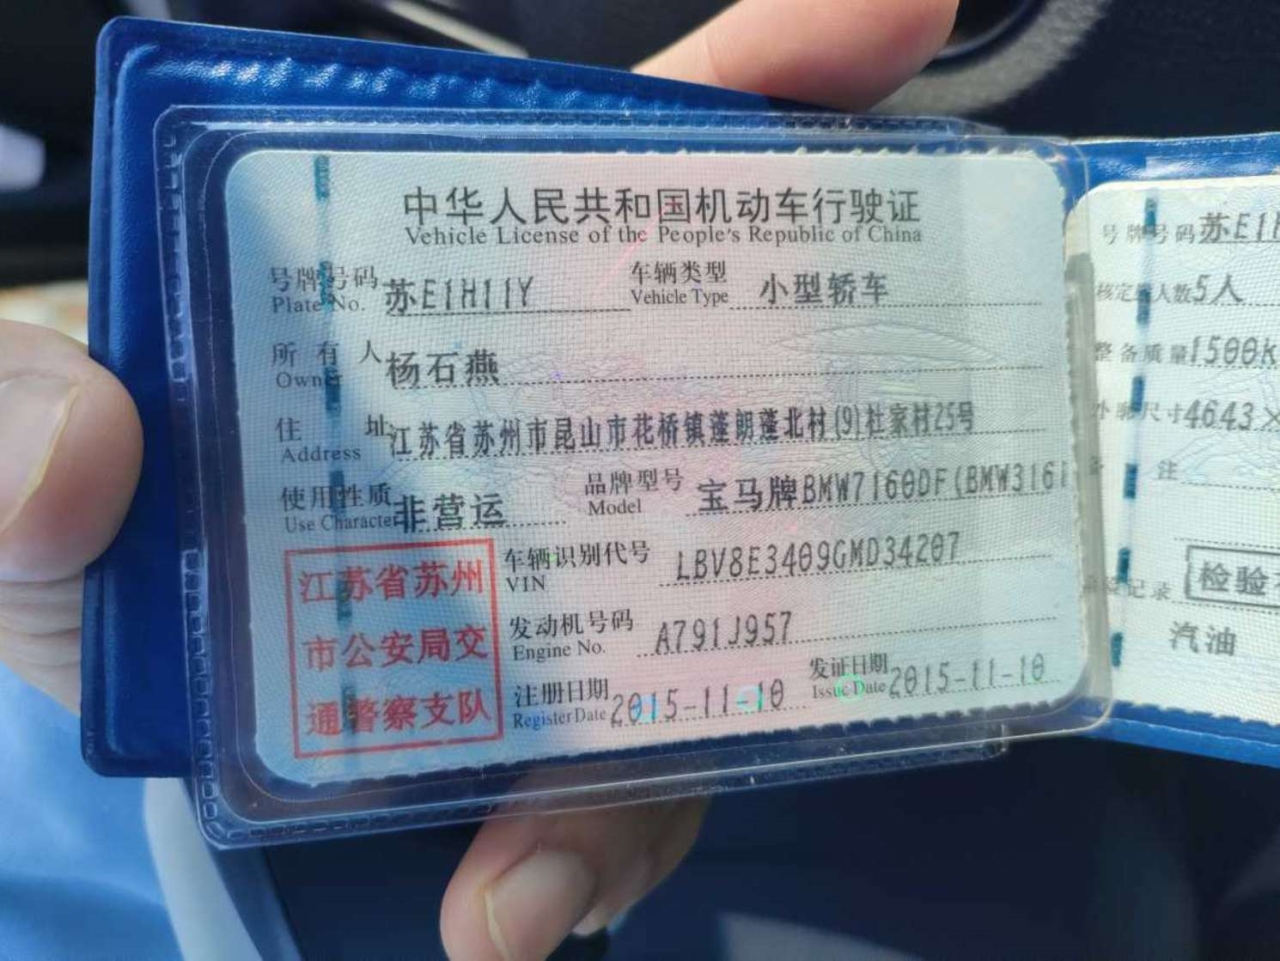 中华人民共和国机动车行驶证
Vehicle License of the People's Republic of China
号牌号码 苏E1H11Y 车辆类型 小型轿车
Plate No. Vehicle Type
所有人 杨石燕
Owner
住址 江苏省苏州市昆山市花桥镇蓬朗蓬北村(9)杜家村25号
Address
使用性质 非营运 品牌型号 宝马牌BMW7160DF(BMW316i
Use Character Model
江苏省苏州
市公安局交
通警察支队
车辆识别代号 LBV8E3409GMD34207
VIN
发动机号码 A791J957
Engine No.
注册日期 2015-11-10 发证日期 2015-11-10
Register Date Issue Date
号牌号码 苏E1
核定载人数 5人
整备质量 1500K
外廓尺寸 4643×
备注
检验记录 检验
汽油